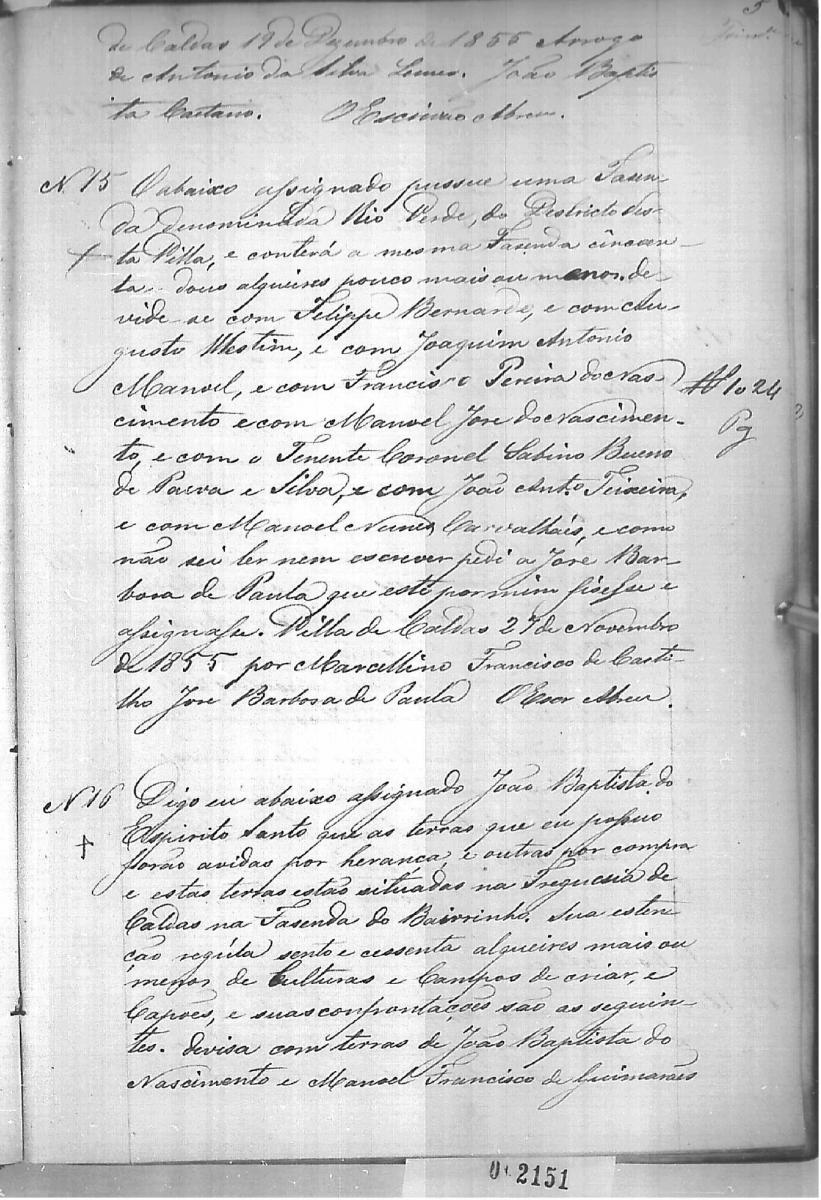 5
de Caldas 19 de Dezembro de 1855 Arrogo
de Antonio da Silva Lemes. João Baptis
ta Caetano. O Escrivão Abreu.
N. 15 O abaixo assignado pussue uma Fasen-
da denominada Rio Verde, do Districto des-
ta Villa, e conterá a mesma Fazenda cincoen-
ta dous alqueires pouco mais ou menos. de-
vide-se com Felippe Bernarde, e com Au-
gusto Westim, e com Joaquim Antonio
Manoel, e com Francisco Pereira do Nas-
cimento e com Manoel Jose do Nascimen-
to, e com o Tenente Coronel Sabino Bueno
de Paeva e Silva, e com João Anto. Teixeira,
e com Manoel Nunes Carvalhaés, e como
não sei ler nem escrever pedi a Jose Bar-
bosa de Paula que este por mim fisesse e
assignasse. Villa de Caldas 27 de Novembro
de 1855 por Marcellino Francisco de Casti-
lho Jose Barbosa de Paula O Escr Abreu.
1024
Pg
N 16 Digo eu abaixo assignado João Baptista do
Espirito Santo que as terras que eu possuo
forão avidas por herança, e outras por compra
e estas terras estão situadas na Freguesia de
Caldas na Fasenda do Bairrinho. Sua esten-
ção regúla sento e cessenta alqueires mais ou
menos de Culturas e Campos de criar, e
Capões, e suas confrontações são as seguin-
tes. devisa com terras de João Baptista do
Nascimento e Manoel Francisco de Guimarães
2151